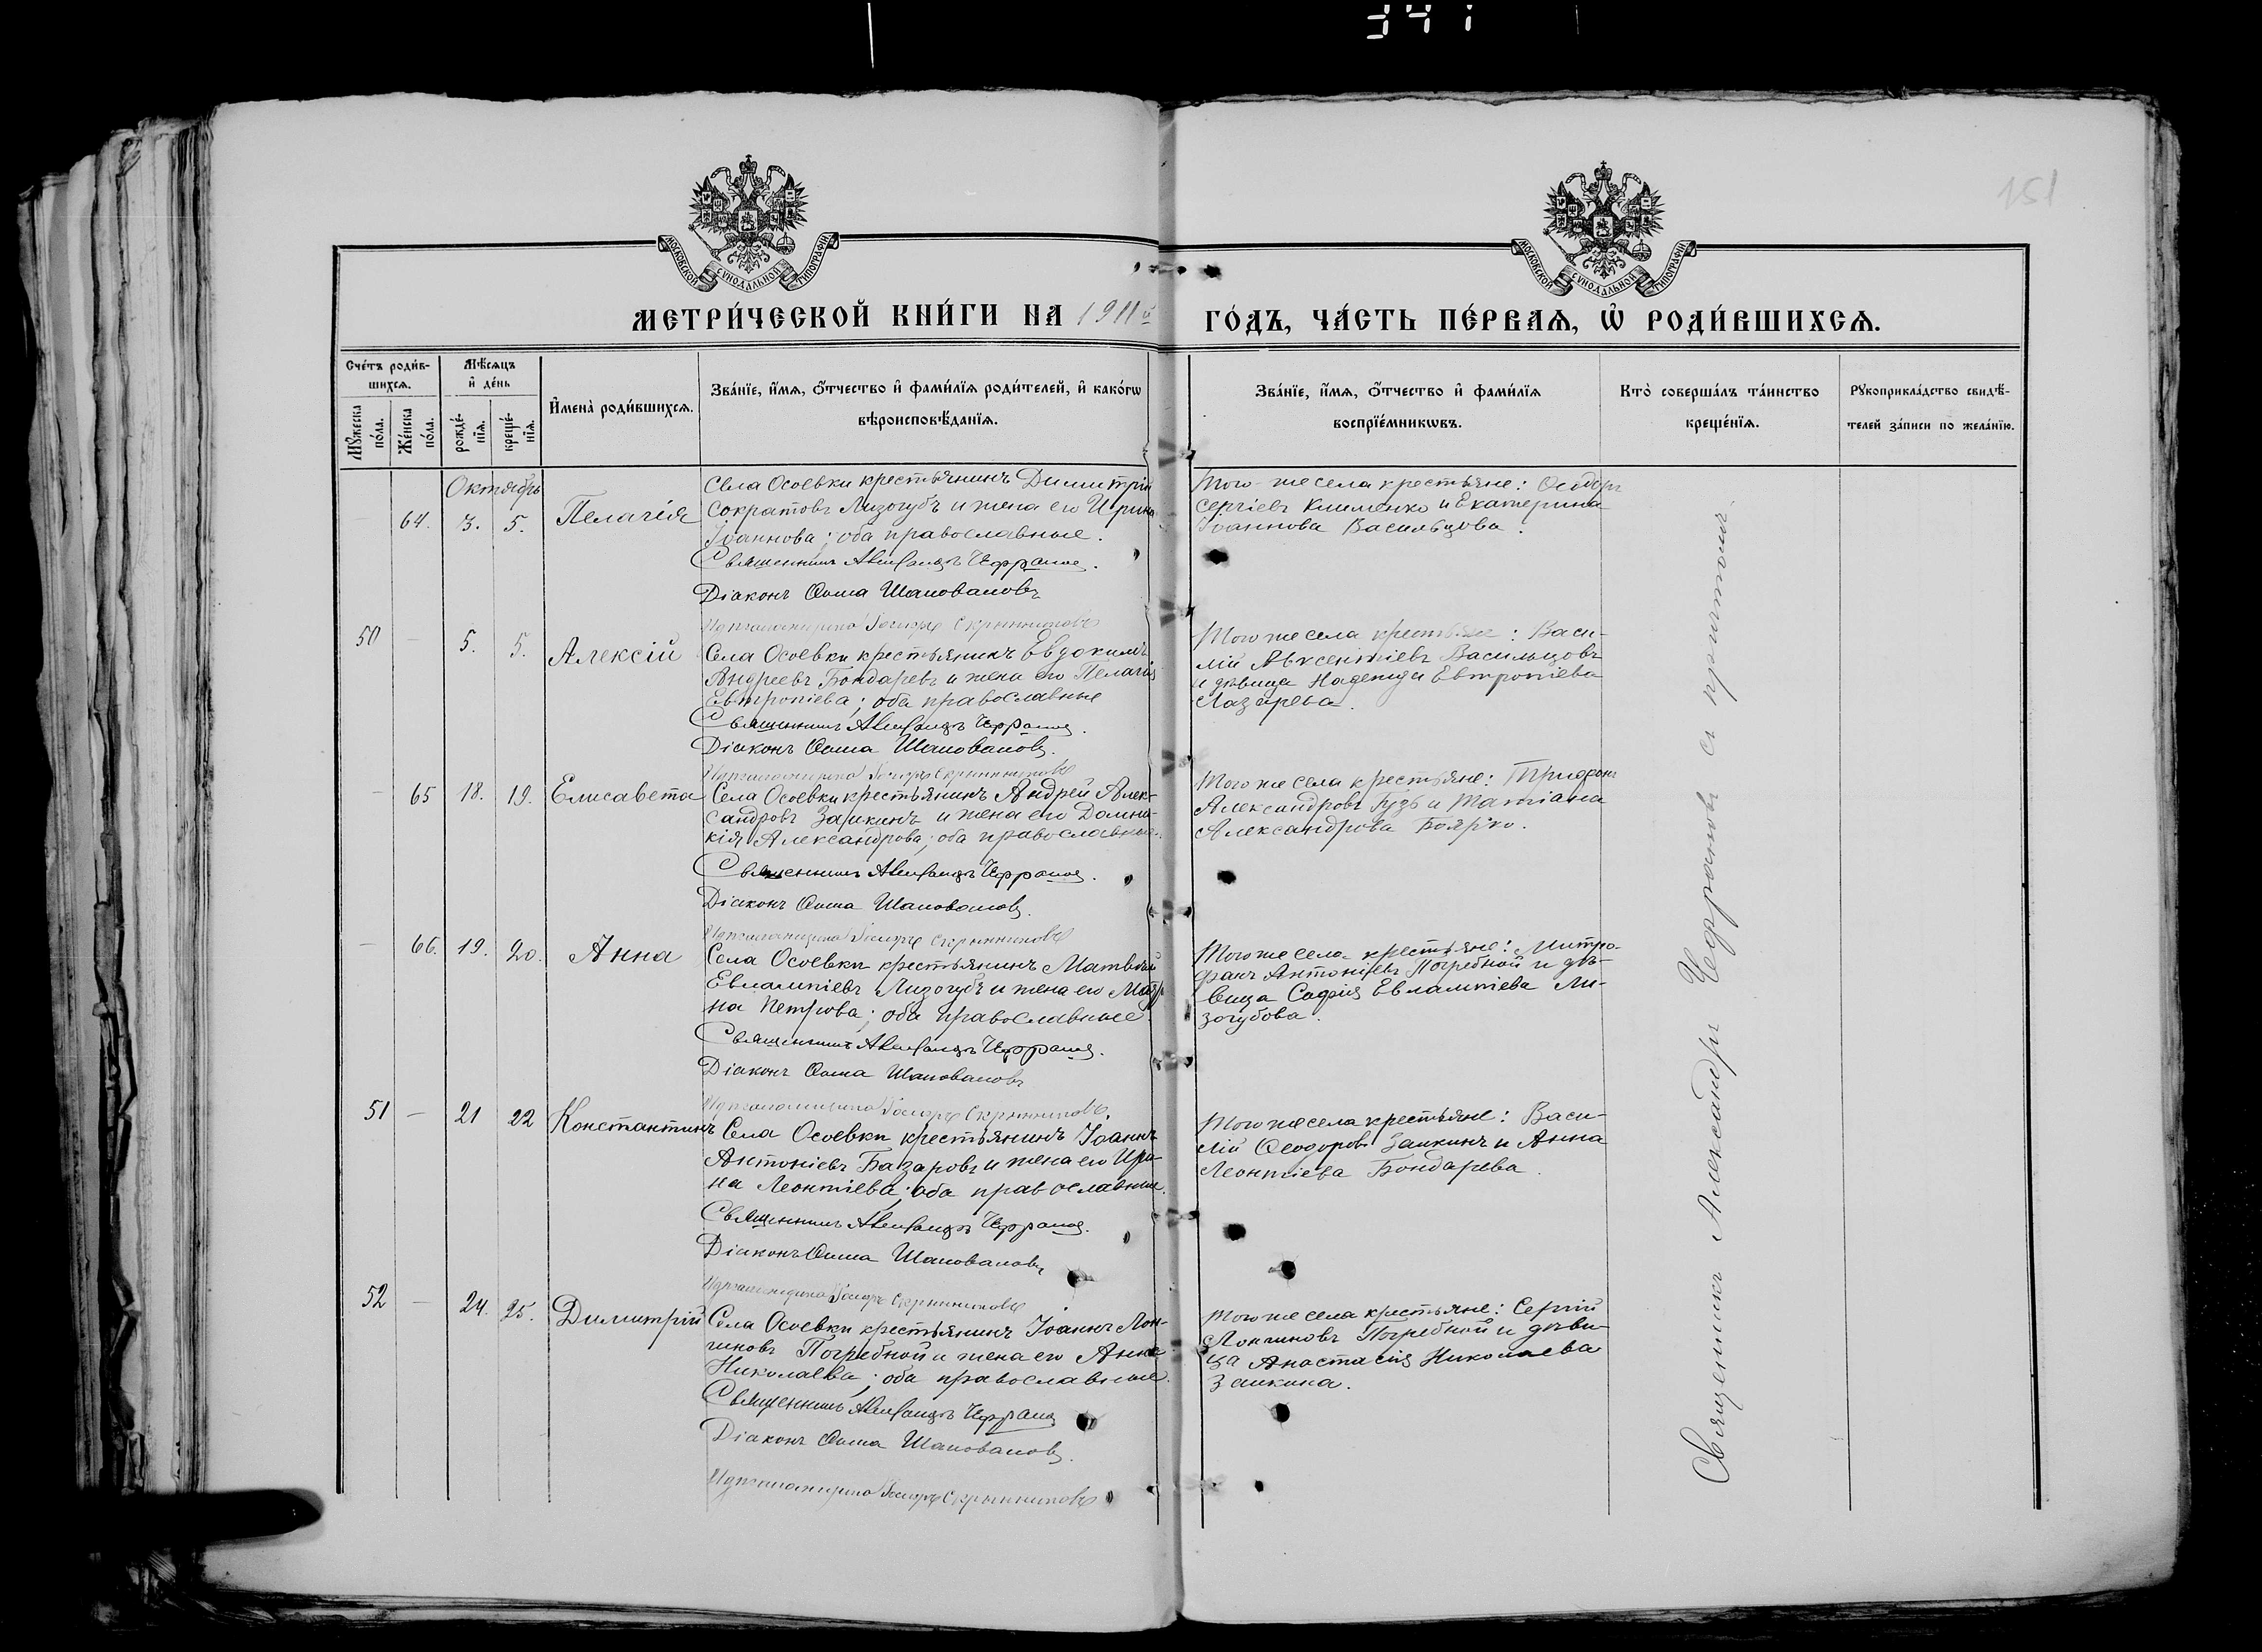 151
МОСКОВСКОЙ СѴНОДАЛЬНОЙ ТИПОГРАФІИ
МОСКОВСКОЙ СѴНОДАЛЬНОЙ ТИПОГРАФІИ
МЕТРИ́ЧЕСКОЙ КНИ́ГИ НА 1911й ГО́ДЪ, ЧА́СТЬ ПЕ́РВАѦ, Ѡ҆ РОДИ́ВШИХСѦ.
Сче́тъ роди́в-
шихсѧ.
Мꙋ́жеска по́ла.
Же́нска по́ла.
Мѣ́сѧцъ
и҆ де́нь
рожде́-
нїѧ.
креще́-
нїѧ.
И҆мена̀ роди́вшихсѧ.
Зва́нїе, и҆́мѧ, о҆́тчество и҆ фами́лїѧ роди́телей, и҆ како́гѡ
вѣроисповѣ́данїѧ.
Зва́нїе, и҆́мѧ, о҆́тчество и҆ фами́лїѧ
воспрїе́мникѡвъ.
Кто̀ соверша́лъ та́инство
креще́нїѧ.
Рꙋкоприкла́дство свидѣ́-
телей за́писи по жела́нїю.
Октябрь
64. 3. 5. Пелагія
Села Осоевки крестьянинъ Димитрій
Сократовъ Лизогубъ и жена его Ирина
Іоаннова; оба православные.
Священникъ Александръ Чефрановъ.
Діаконъ Ѳома Шаповаловъ
Того-же села крестьяне: Ѳеодоръ
Сергіевъ Клименко и Екатерина
Іоаннова Васильцова.
50 — 5. 5. Алексій
Села Осоевки крестьянинъ Евдокимъ
Андреевъ Бондаревъ и жена его Пелагія
Евтропіева; оба православные
Священникъ Александръ Чефрановъ.
Діаконъ Ѳома Шаповаловъ.
Того же села крестьяне: Васи-
лій Авксентіевъ Васильцовъ
и дѣвица Надежда Евтропіева
Лазарева.
— 65 18. 19. Елисавета
Села Осоевки крестьянинъ Андрей Алек-
сандровъ Заикинъ и жена его Домни-
кія Александрова; оба православные.
Священникъ Александръ Чефрановъ.
Діаконъ Ѳома Шаповаловъ.
Того же села крестьяне: Трифонъ
Александровъ Гузь и Татіана
Александрова Боярко.
— 66. 19. 20. Анна
Села Осоевки крестьянинъ Матвѣй
Евлампіевъ Лизогубъ и жена его Мат
на Петрова; оба православные.
Священникъ Александръ Чефрановъ.
Діаконъ Ѳома Шаповаловъ
Того же села крестьяне: Митро-
фанъ Антоніевъ Погребной и дѣ-
вица Софія Евлампіева Ли-
зогубова.
51 — 21 22 Константинъ
Села Осоевки крестьянинъ Іоаннъ
Антоніевъ Базаровъ и жена его Ири-
на Леонтіева; оба православные.
Священникъ Александръ Чефрановъ.
Діаконъ Ѳома Шаповаловъ
Того же села крестьяне: Васи-
лій Ѳеодоровъ Заикинъ и Анна
Леонтіева Бондарева.
52 — 24. 25. Димитрій
Села Осоевки крестьянинъ Іоаннъ Лон-
гиновъ Погребной и жена его Анна
Николаева; оба православные.
Священникъ Александръ Чефрановъ
Діаконъ Ѳома Шаповаловъ.
Того же села крестьяне: Сергій
Лонгиновъ Погребной и дѣви-
ца Анастасія Николаева
Заикина.
Священникъ Александръ Чефрановъ съ причтомъ.